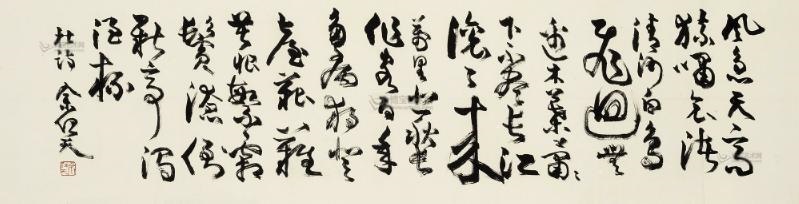 風急天高
猿嘯哀渚
清沙白鳥
飛迴無
邊木葉蕭々
下不盡長江
滾々來
萬里悲秋常
作客百年
多病獨登
臺艱難
苦恨繁霜
鬢潦倒
新亭濁
酒杯
杜詩 余任天